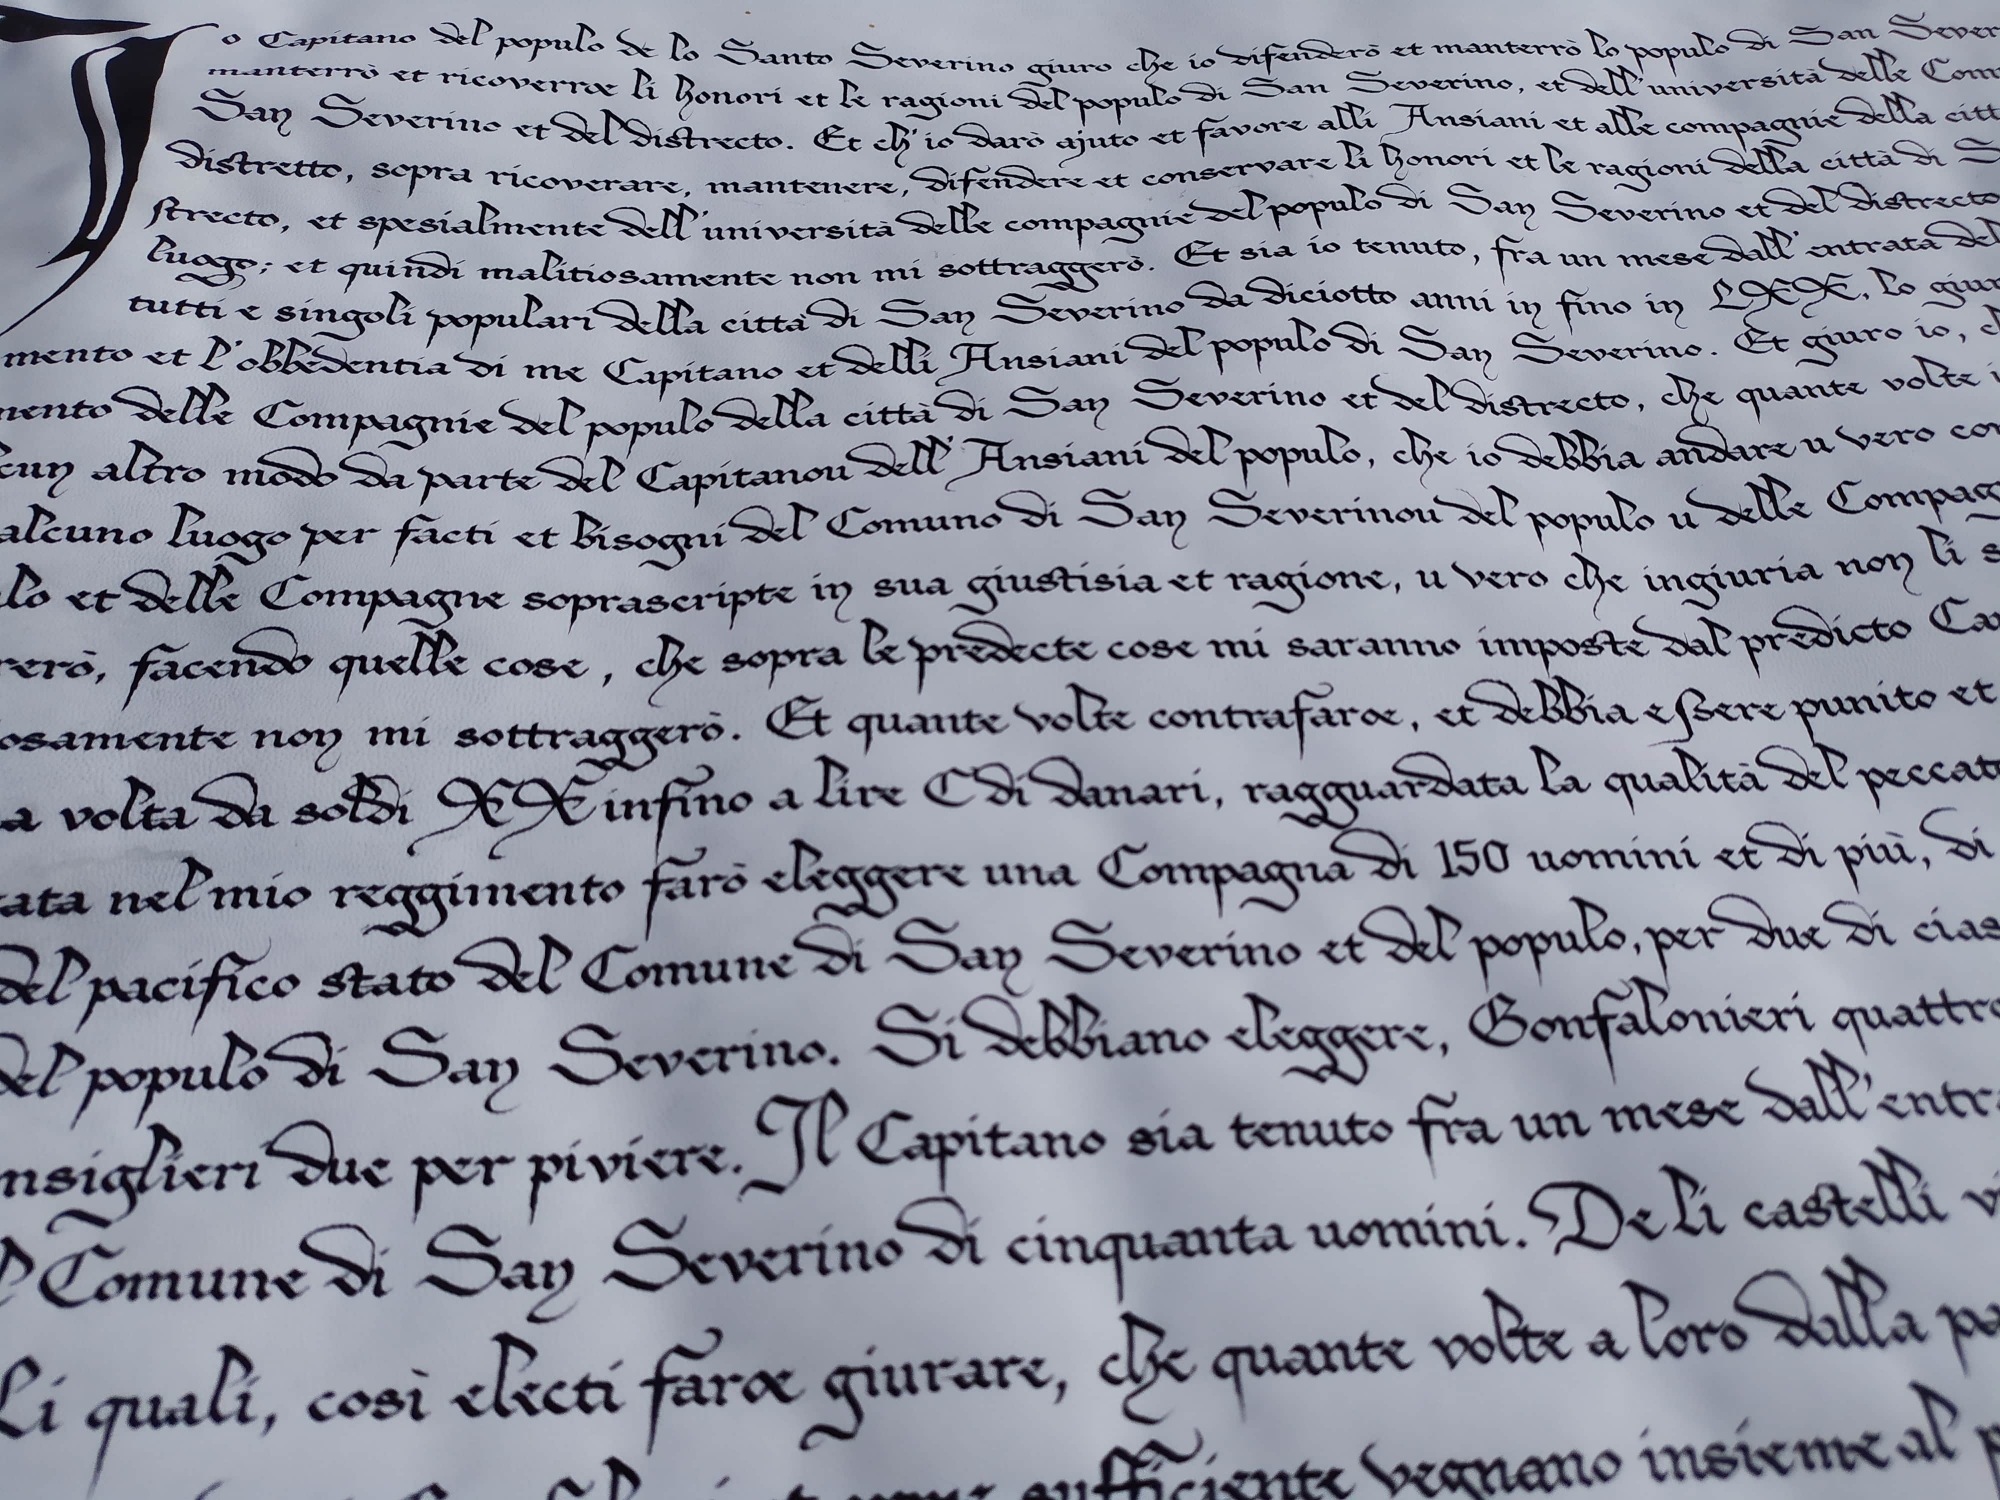 Io Capitano del populo de lo Santo Severino giuro che io difenderò et manterrò lo populo di San Sever
manterrò et ricoverrœ li honori et le ragioni del populo di San Severino, et dell'università delle Com
San Severino et del distrecto. Et ch'io darò ajuto et favore alli Ansiani et alle compagnie della citt
distretto, sopra ricoverare, mantenere, difendere et conservare li honori et le ragioni della città di S
strecto, et spesialmente dell'università delle compagnie del populo di San Severino et del distrecto
luogo; et quindi malitiosamente non mi sottraggerò. Et sia io tenuto, fra un mese dall'entrata del
tutti e singoli populari della città di San Severino da diciotto anni in fino in LXX, lo giur
mento et l'obbedentia di me Capitano et delli Ansiani del populo di San Severino. Et giuro io, c
mento delle Compagnie del populo della città di San Severino et del distrecto, che quante volte i
cun altro modo da parte del Capitano u dell'Ansiani del populo, che io debbia andare u vero con
alcuno luogo per facti et bisogni del Comuno di San Severino u del populo u delle Compag
lo et delle Compagne soprascripte in sua giustisia et ragione, u vero che ingiuria non li s
rerò, facendo quelle cose, che sopra le predecte cose mi saranno imposte dal predicto Ca
osamente non mi sottraggerò. Et quante volte contrafarœ, et debbia essere punito et
a volta da soldi XX infino a lire C di danari, ragguardata la qualità del peccat
ata nel mio reggimento farò eleggere una Compagna di 150 uomini et di più, di
del pacifico stato del Comune di San Severino et del populo, per due di cias
del populo di San Severino. Si debbiano eleggere, Gonfalonieri quattro
nsiglieri due per piviere. Il Capitano sia tenuto fra un mese dall'entr
l Comune di San Severino di cinquanta uomini. De li castelli vi
Li quali, così electi farœ giurare, che quante volte a loro dalla pa
sufficiente vegnano insieme al p